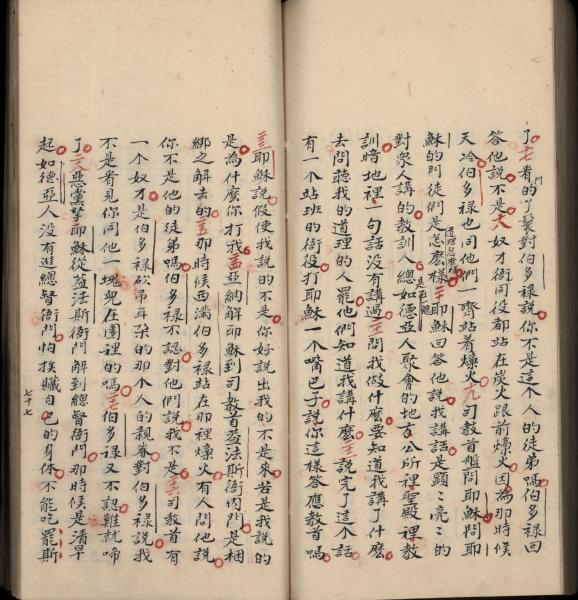 了十七看門的丫鬟對伯多禄說你不是這个人的徒弟嗎伯多禄回
答他說不是十八奴才衙同役都站在炭火跟前燻火因為那時候
天冷伯多禄也同他們一齊站着燻火十九司教首盤問耶穌問耶
穌的門徒們是怎麽樣道理是怎麽樣二十耶穌回答他說我講話是顕〻亮〻的
對衆人講的教訓人總如德亞人聚會的地方公所裡聖殿裡教
訓暗地裡一句話没有講過二一問我做什麽要知道我講了什麽
去問聽我的道理的人罷他們知道我講什麽二二說完了這个話
有一个站班的衙役打耶穌一个嘴巴子說你這樣答應教首嗎
二三耶穌說假使我說的不是你好說出我的不是來若是我說的
是為什麽你打我二四亞納解耶穌到司教首盖法斯衙内門是梱
綁之解去的二五那時候西满伯多禄站在那裡燻火有人問他說
你不是他的徒弟嗎伯多禄不認對他們說我不是二六司教首有
一个奴才是伯多禄砍吊耳朶的那个人的親眷對伯多禄說我
不是看見你同他一塊兒在園裡的嗎二七伯多禄又不認雞就啼
了二八惡黨拏耶穌從盖法斯衙門解到總督衙門那時候是清早
起如德亞人没有進總督衙門怕挨贜自己的身体不能吃罷斯
七十七